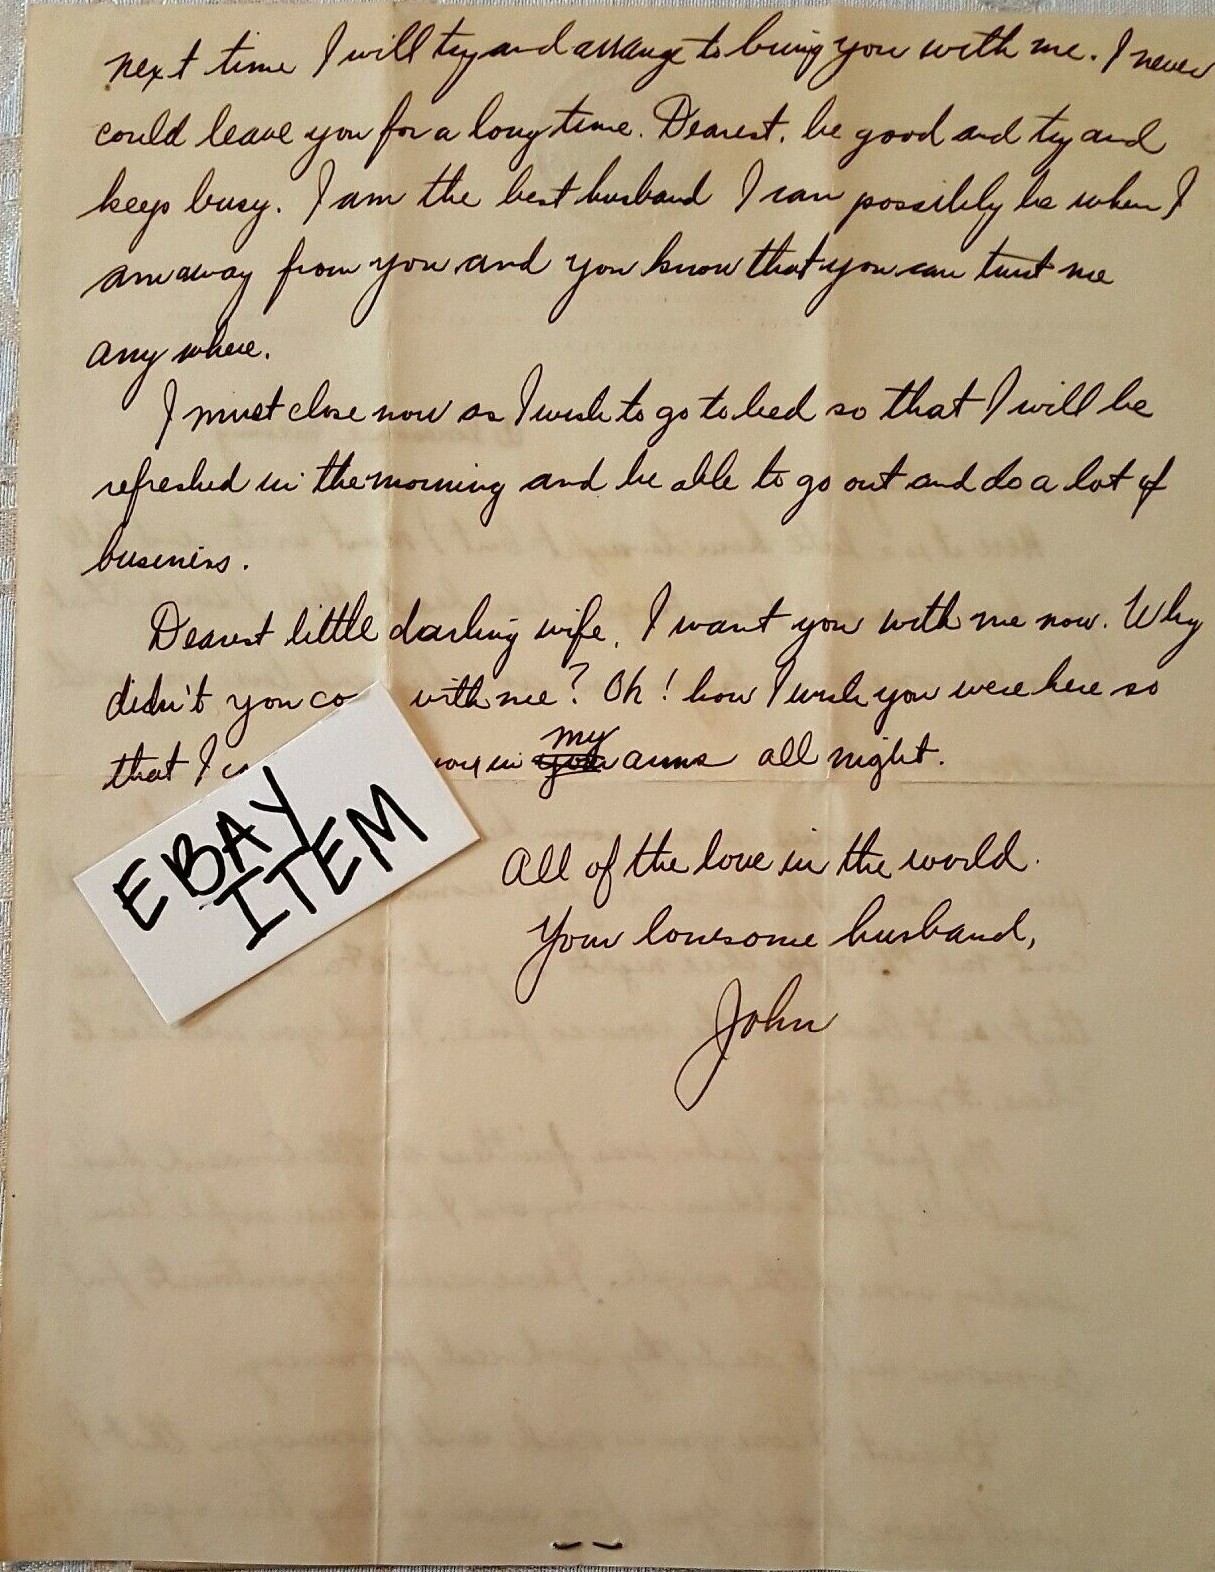 next time I will try and arrange to bring you with me. I never
could leave you for a long time. Dearest, be good and try and
keep busy. I am the best husband I can possibly be when I
am away from you and you know that you can trust me
any where.
I must close now as I wish to go to bed so that I will be
refreshed in the morning and be able to go out and do a lot of
business.
Dearest little darling wife, I want you with me now. Why
didn't you co with me? Oh! how I wish you were here so
that I you in my arms all night.
All of the love in the world.
Your lonesome husband,
John
EBAY
ITEM